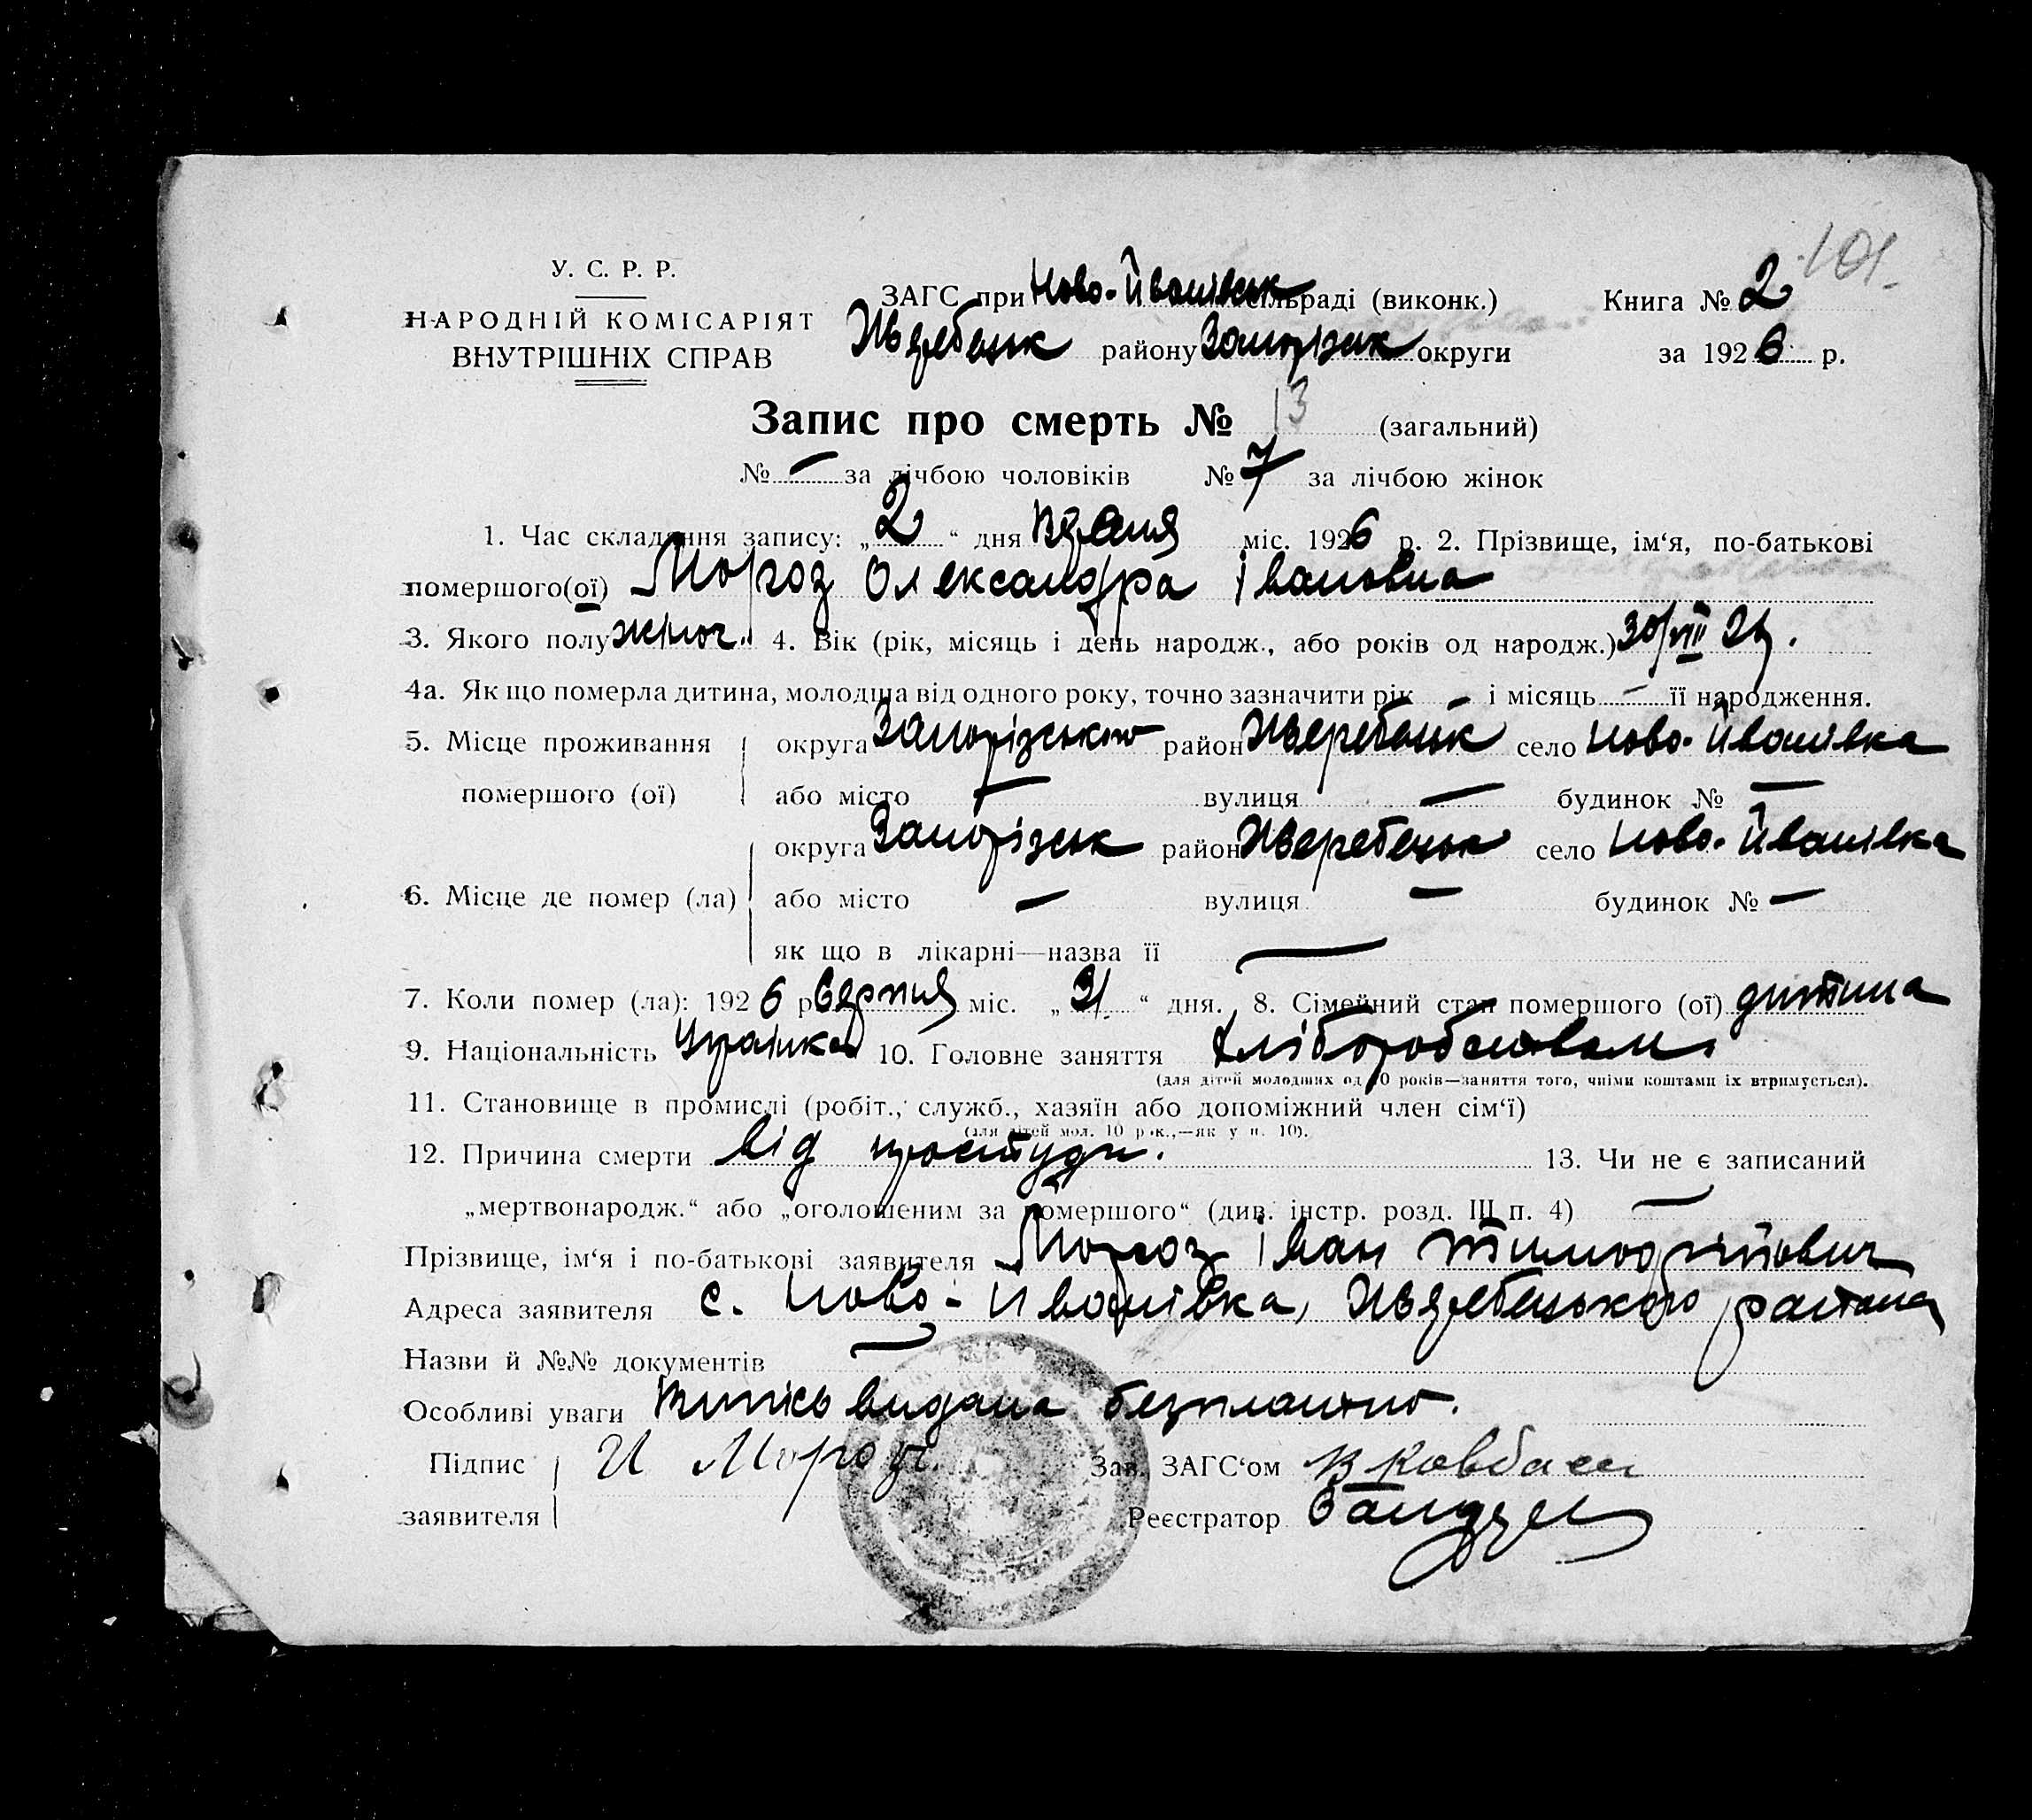 101.
У. С. Р. Р.
НАРОДНІЙ КОМІСАРІЯТ
ВНУТРІШНІХ СПРАВ
ЗАГС при Ново-Йванівськ сільраді (виконк.)
Книга № 2
Жеребецьк району Запорізьк округи
за 1926 р.
Запис про смерть № 13 (загальний)
№ — за лічбою чоловіків № 7 за лічбою жінок
1. Час складання запису: „2“ дня міс. 1926 р. 2. Прізвище, ім‘я, по-батькові
помершого(ої) Мороз Олександра Івановна
3. Якого полу жіноч. 4. Вік (рік, місяць і день народж., або років од народж.)
4а. Як що померла дитина, молодша від одного року, точно зазначити рік — і місяць — її народження.
5. Місце проживання помершого (ої)
округа Запорізького район Жеребецьк село Ново-Йванівка
або місто — вулиця — будинок № —
6. Місце де помер (ла)
округа Запорізьк район Жеребецьк село Ново-Йванівка
або місто — вулиця — будинок № —
як що в лікарні—назва її —
7. Коли помер (ла): 1926 р. серпня міс. „31“ дня. 8. Сімейний стан помершого (ої) дитина
9. Національність Українка 10. Головне заняття хліборобством
(для дітей молодших од 10 років—заняття того, чиїми коштами їх втримується).
11. Становище в промислі (робіт., служб., хазяїн або допоміжний член сім‘ї)
(для дітей мол. 10 рок.,—як у п. 10).
12. Причина смерти від простуди. 13. Чи не є записаний
„мертвонародж.“ або „оголошеним за помершого“ (див. інстр. розд. III п. 4) —
Прізвище, ім‘я і по-батькові заявителя Мороз Іван
Адреса заявителя с. Ново-Йванівка, Жеребецького району
Назви й №№ документів —
Особливі уваги Випісь видана безплатно.
Підпис заявителя И Мороз
Зав. ЗАГС‘ом Ковбаса
Реєстратор